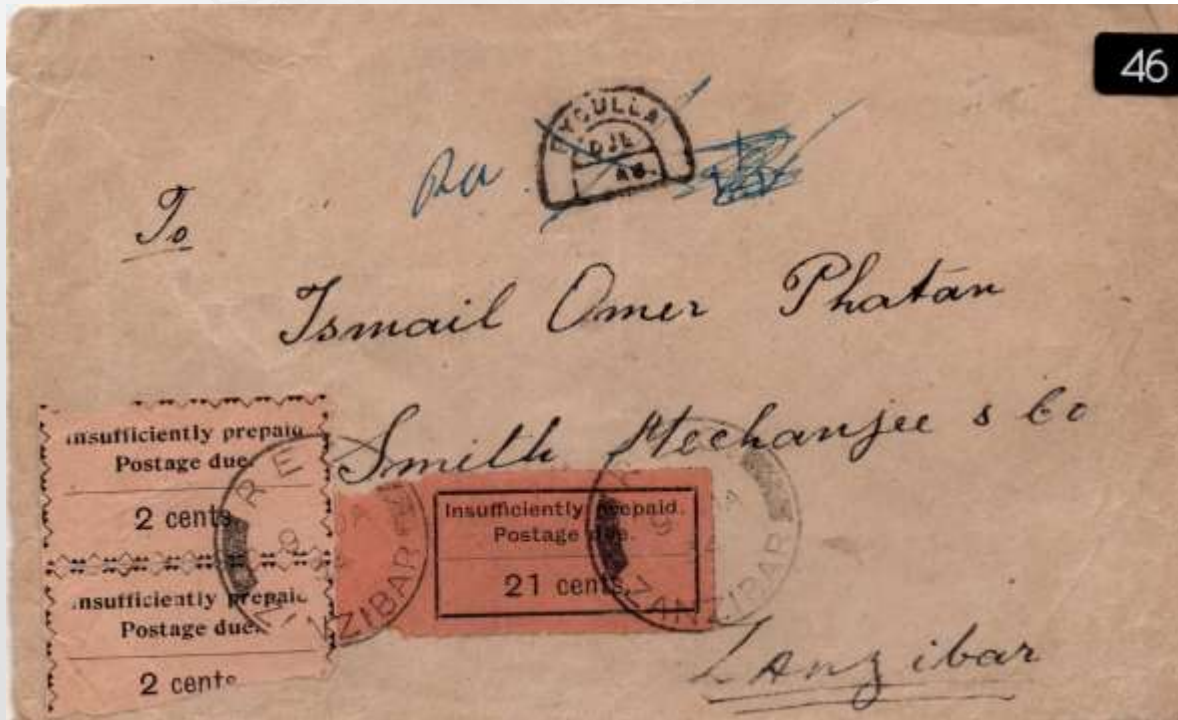 46
BYCULLA
DJL
AM.
To
Ismail Omer Phatan
Smith Mechanjee s Co
Insufficiently prepaid
Postage due.
2 cents.
Insufficiently prepaid
Postage due.
2 cents
Insufficiently prepaid.
Postage due.
21 cents.
ZANZIBAR
ZANZIBAR
Zanzibar